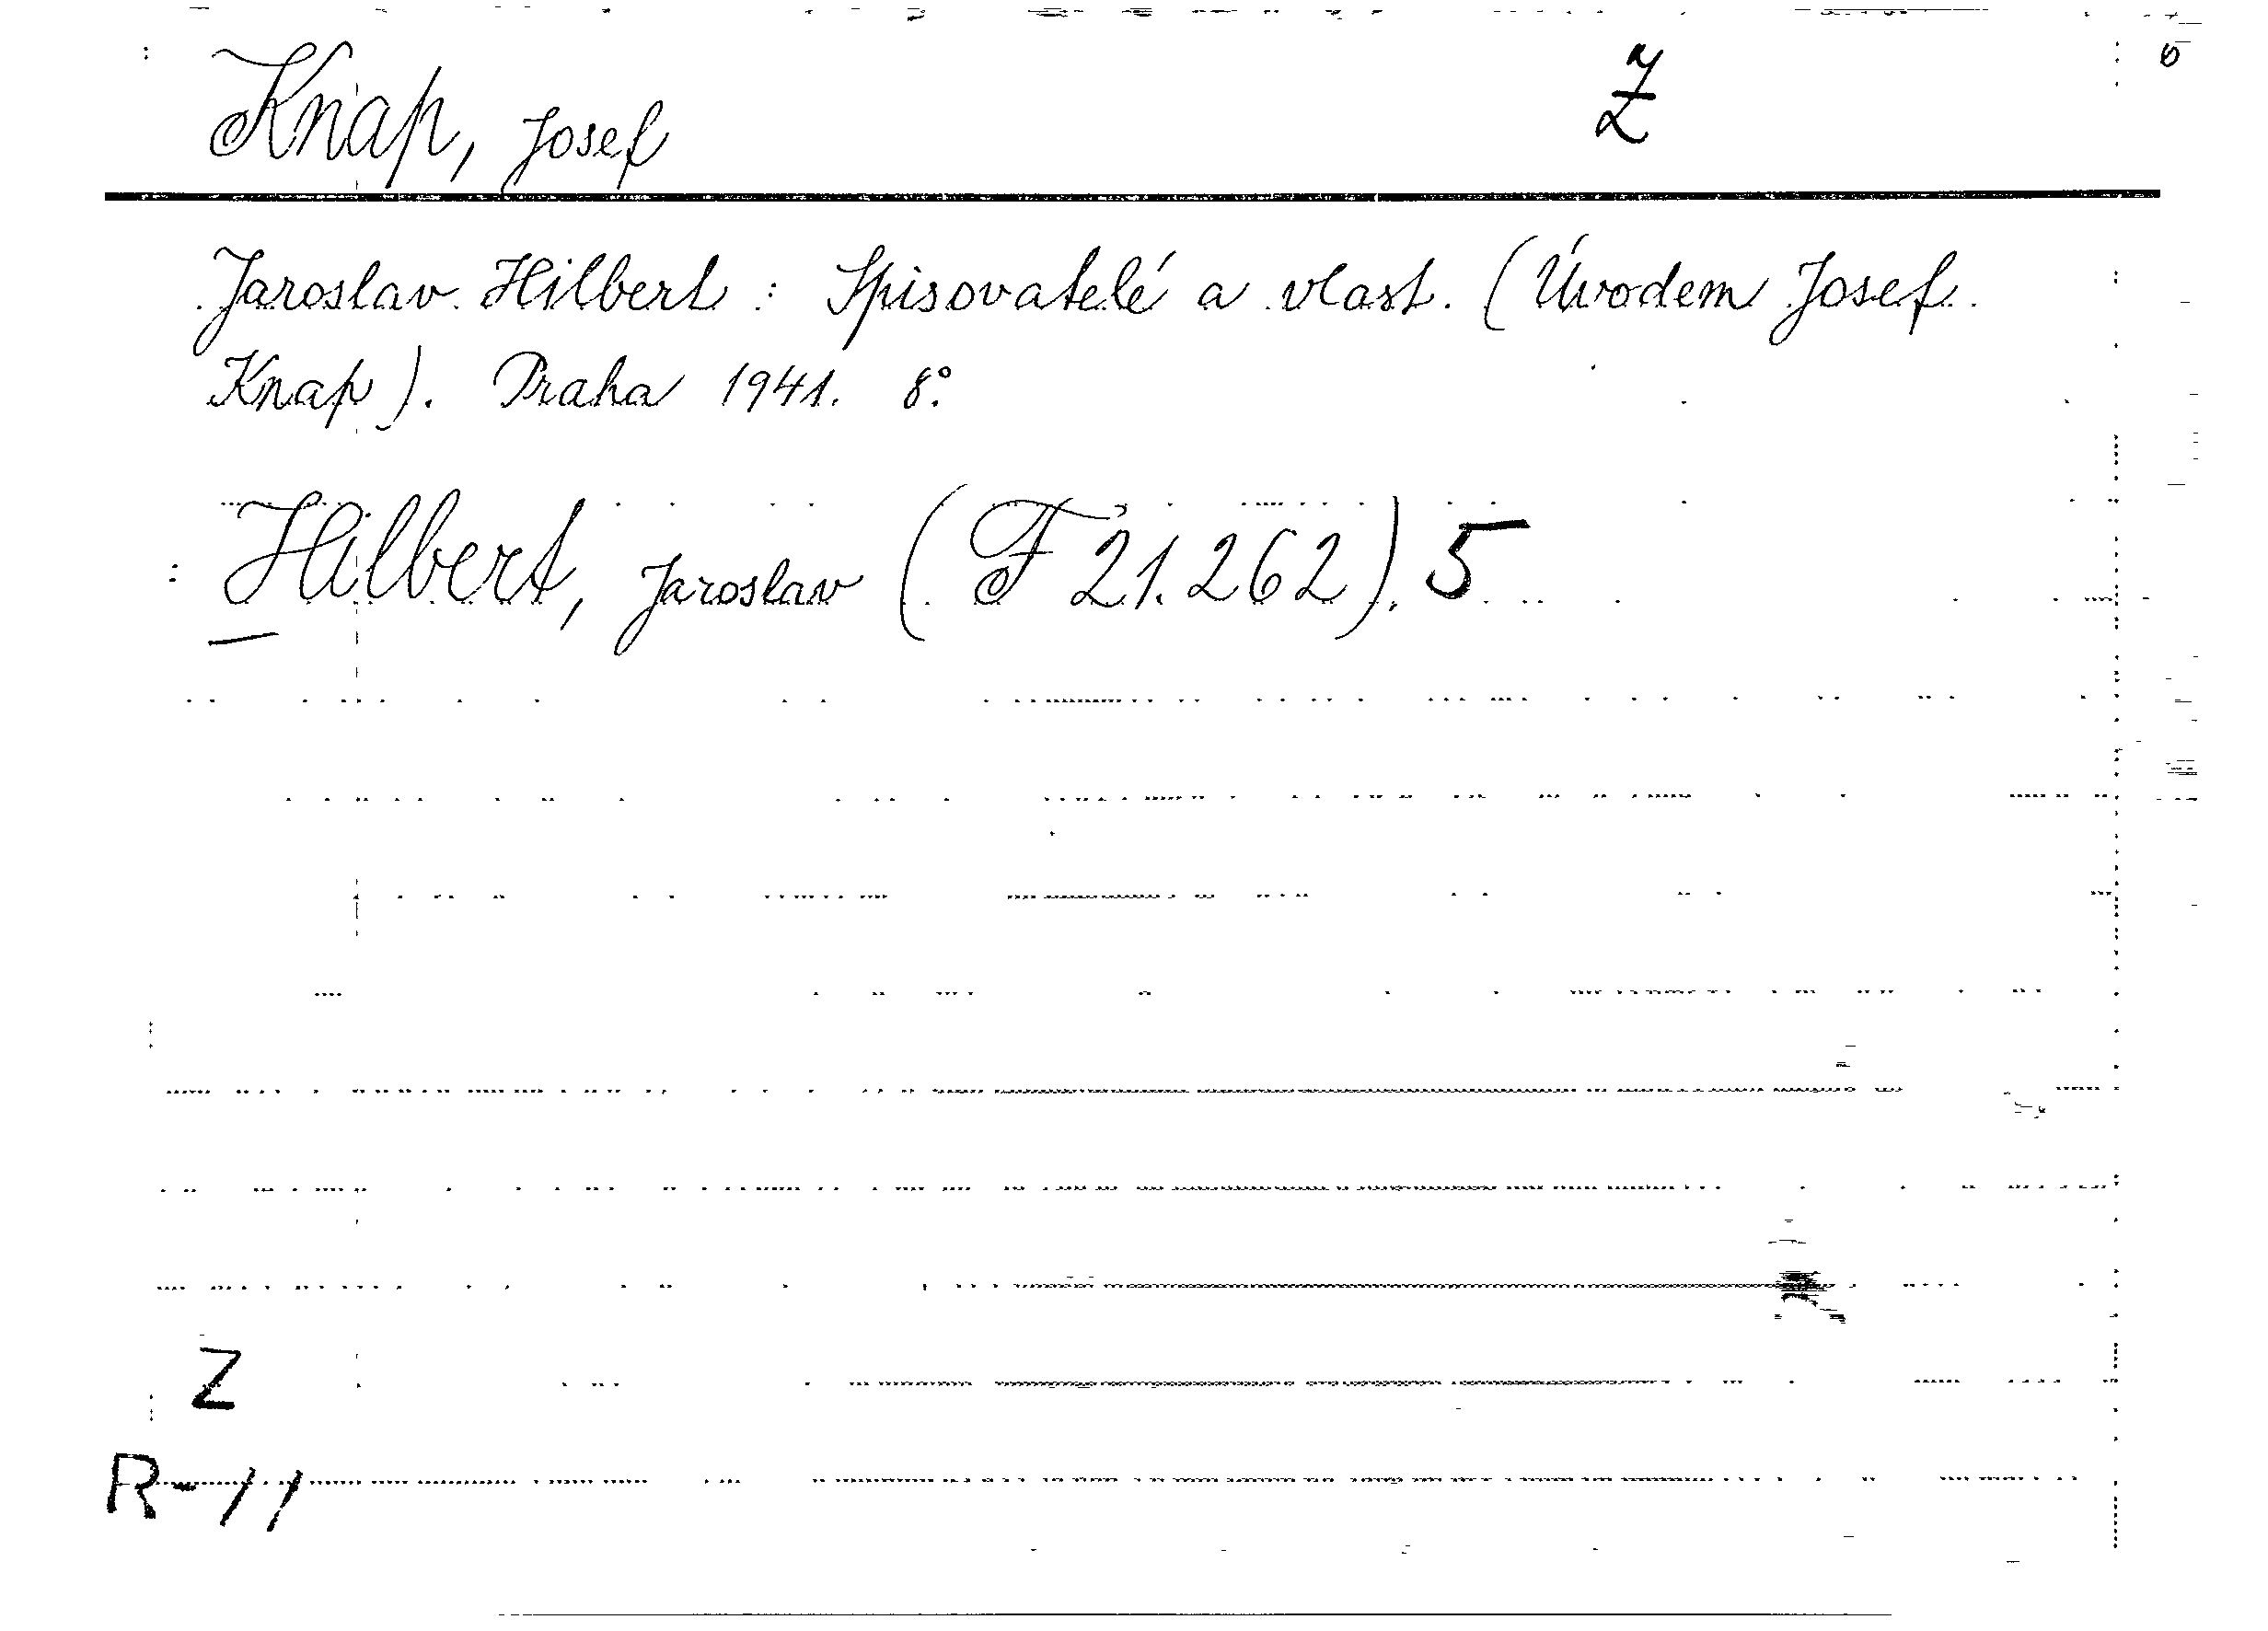 Knap, Josef Z
Jaroslav Hilbert : Spisovatelé a vlast. (Úvodem Josef
Knap). Praha 1941. 8°.
Hilbert, Jaroslav (F 21.262). 5
Z
R-11